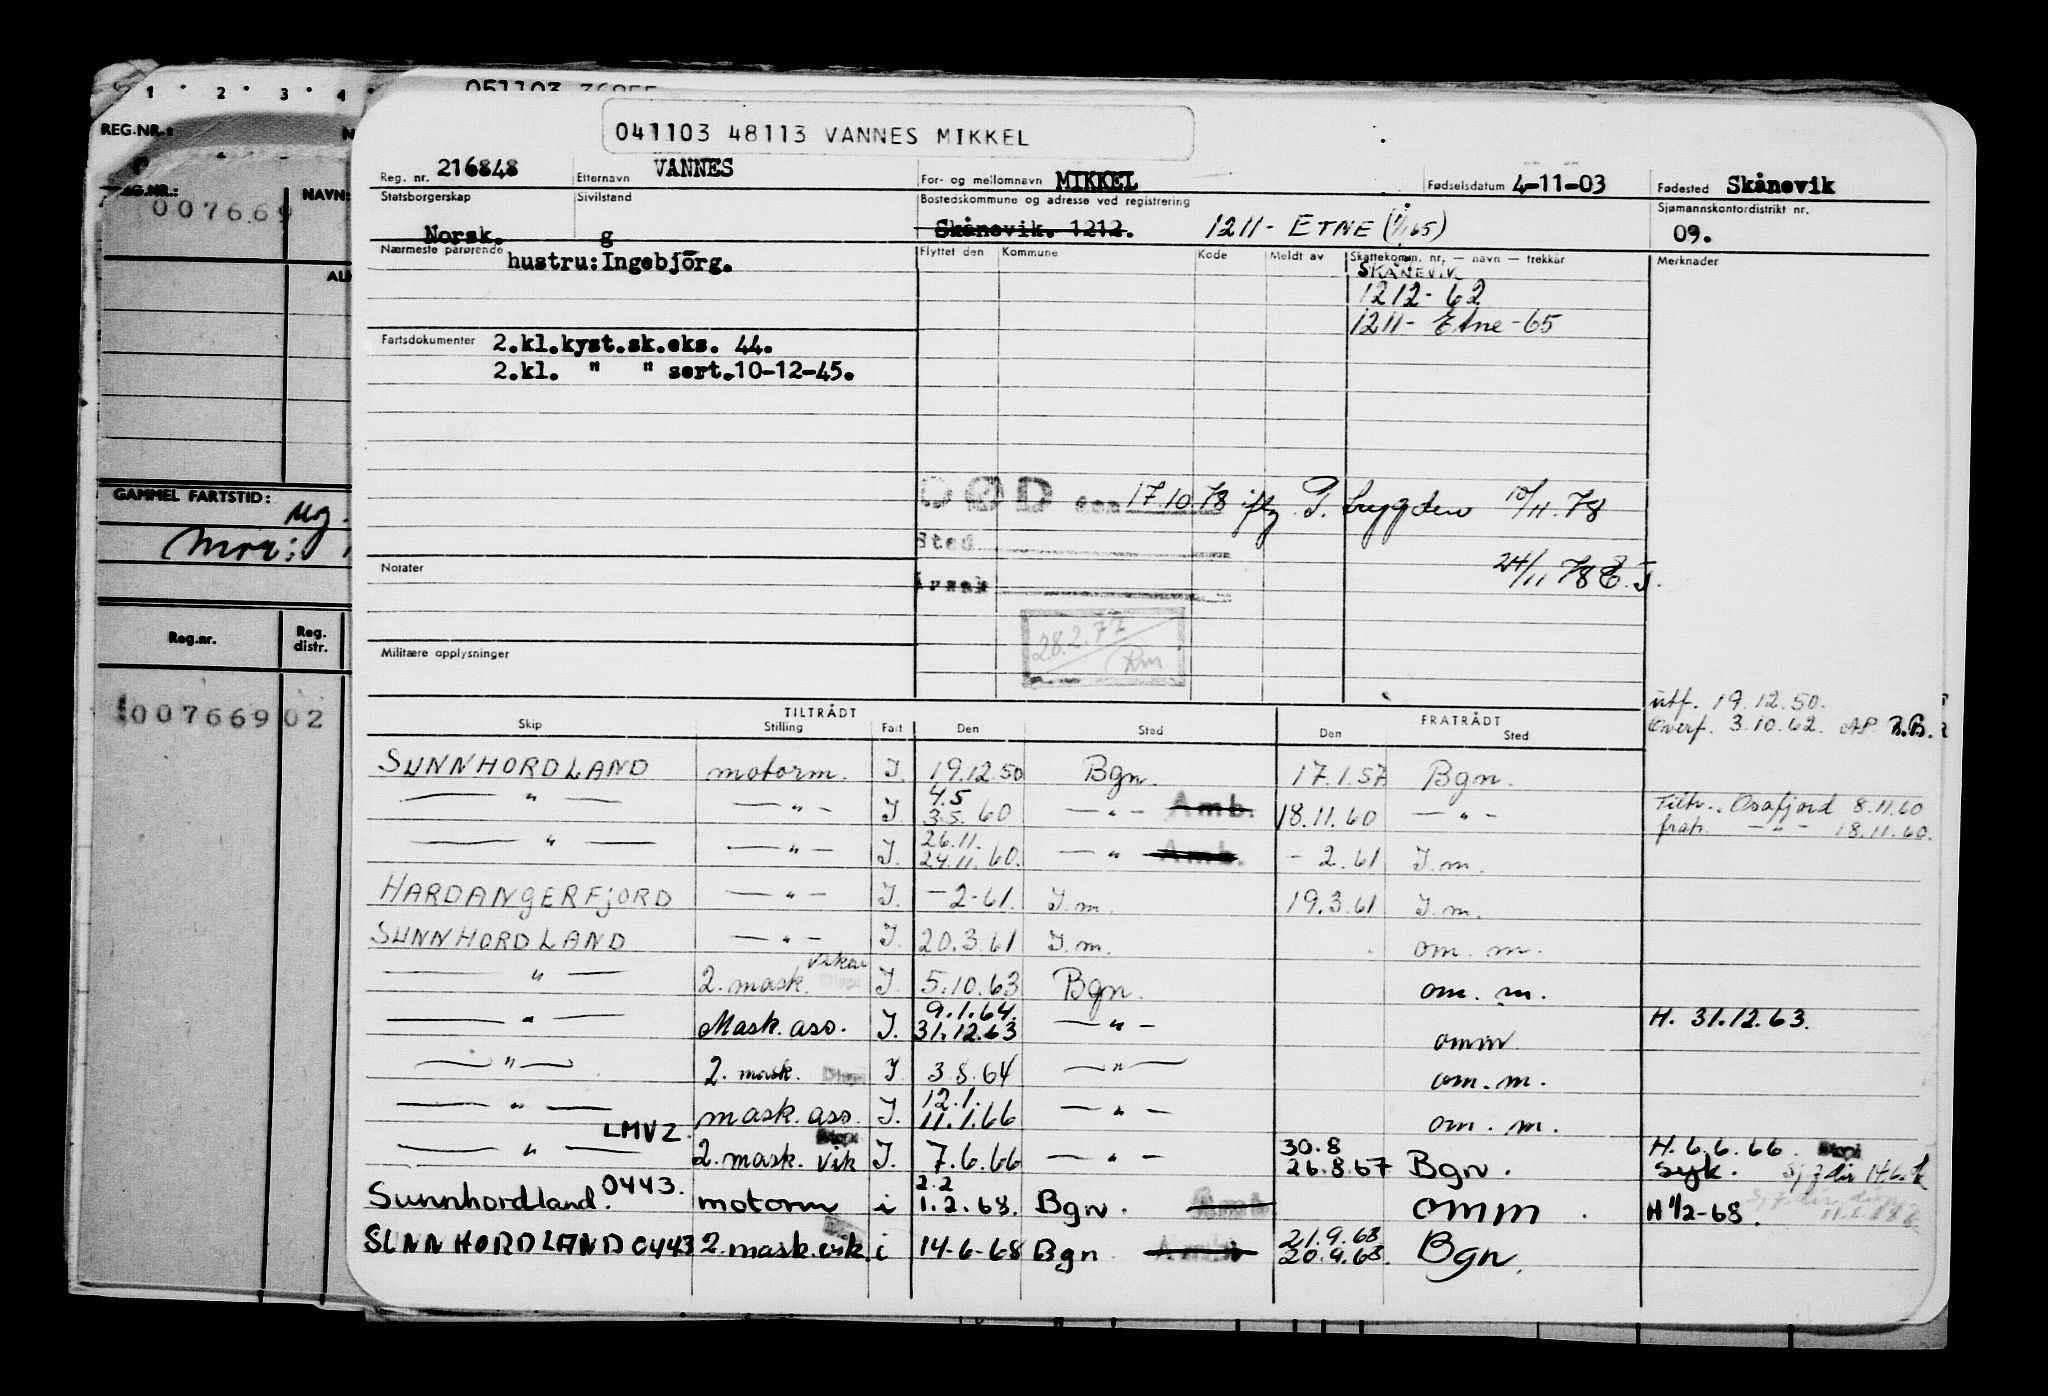 1 · 2 · 3 · 4 ·
REG.NR.:
REG.NR.:
NAVN:
007669
GAMMEL FARTSTID:
Reg.nr.
Reg. distr.
007669 02
041103 48113 VANNES MIKKEL
Reg. nr. 216848 Etternavn VANNES For- og mellomnavn MIKKEL Fødselsdatum 4-11-03 Fødested Skånevik
Statsborgerskap Sivilstand Bostedskommune og adresse ved registrering Sjømannskontordistrikt nr.
Norsk. g Skånevik. 1212. 1211 - ETNE (1/1 65) 09.
Nærmeste pårørende hustru: Ingebjörg. Flyttet den Kommune Kode Meldt av Skattekomm. nr. — navn — trekkår Merknader
SKÅNEVIK
1212 - 62
1211 - Etne - 65
Fartsdokumenter 2.kl.kyst.sk.eks. 44.
2.kl. " " sert.10-12-45.
DØD den 17.10.78 iflg. T. bygden 10/11.78
Sted
Notater 24/11 78 E.J.
Årsak
28.2.77
Militære opplysninger
utf. 19.12.50.
Overf. 3.10.62. AP B.B.
TILTRÅDT FRATRÅDT
Skip Stilling Fart Den Sted Den Sted
SUNNHORDLAND motorm. I. 19.12.50 Bgn. 17.1.57 Bgn.
4.5
— " — — " — I. 3.5. 60 — " — Amb. 18.11.60 — " — Tiltr. Osafjord 8.11.60
fratr. — " — 18.11.60.
26.11.
— " — — " — I. 24.11.60. — " Amb. - 2.61 I.m.
HARDANGERFJORD — " — I. - 2-61. I.m. 19.3.61 I.m.
SUNNHORDLAND — " — I. 20.3.61 I.m. om. m.
— " — 2. mask. vikar I. 5.10.63 Bgn. om. m.
9.1.64.
— " — Mask. ass. I. 31.12.63 — " — omm H. 31.12.63.
— " — 2. mask. I 3.8.64 — " — om. m.
12.1.
— " — mask. ass. I. 11.1.66 — " — om. m.
LMVZ. 30.8 H. 6.6.66.
— " — 2. mask. vik I. 7.6.66 — " — 26.8.67 Bgn. syk.
2.2
Sunnhordland. 0443. motorm i 1.2.68. Bgn. Amb omm. H 1/2-68.
21.9.68
SUNNHORDLAND 0443 2. mask. vik. i 14-6-68 Bgn 20.9.68. Bgn.